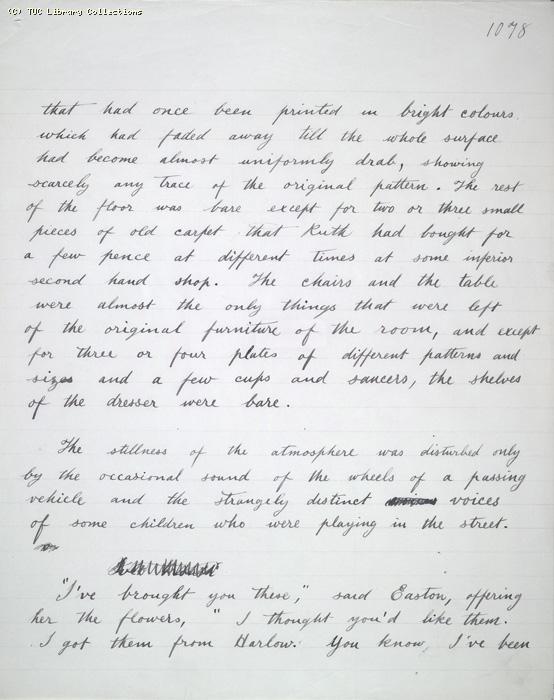 (C) TUC Library Collections
1078
that had once been printed in bright colours.
which had faded away till the whole surface
had become almost uniformly drab, showing
scarcely any trace of the original pattern. The rest
of the floor was bare except for two or three small
pieces of old carpet that Ruth had bought for
a few pence at different times at some inferior
second hand shop. The chairs and the table
were almost the only things that were left
of the original furniture of the room, and except
for three or four plates of different patterns and
sizes and a few cups and saucers, the shelves
of the dresser were bare.
The stillness of the atmosphere was disturbed only
by the occasional sound of the wheels of a passing
vehicle and the strangely distinct voices
of some children who were playing in the street.
"I've brought you these," said Easton, offering
her the flowers, "I thought you'd like them.
I got them from Harlow. You know, I've been